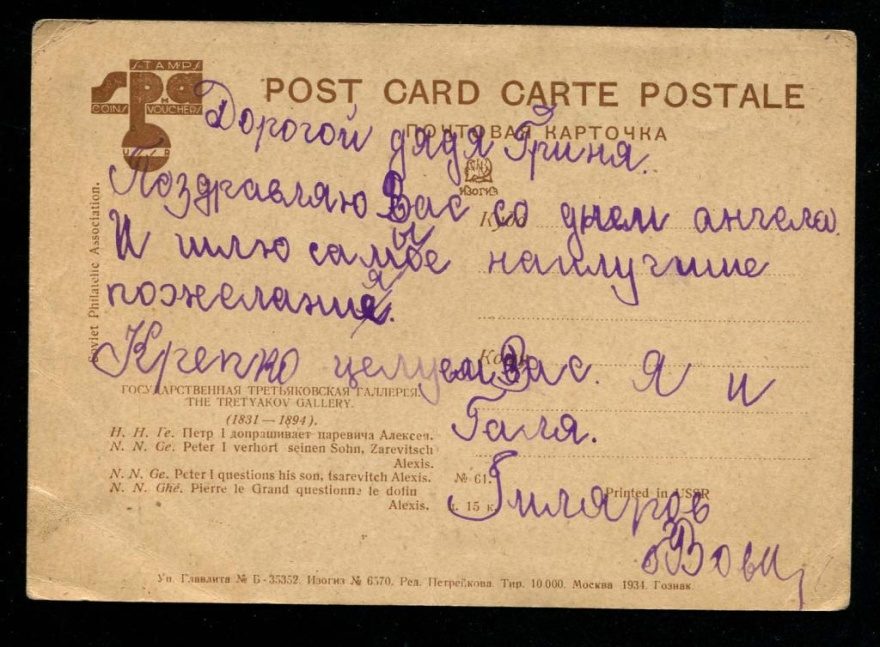 STAMPS
spa
COINS VOUCHERS
POST CARD CARTE POSTALE
ПОЧТОВАЯ КАРТОЧКА
Дорогой дядя Гриня.
ИЗОГИЗ
Поздравляю Вас со днем ангела.
Куда
И шлю самые наилучшие
пожелания.
Soviet Philatelic Association.
Крепко целуем Вас. Я и
Кому
Галя.
ГОСУДАРСТВЕННАЯ ТРЕТЬЯКОВСКАЯ ГАЛЛЕРЕЯ.
THE TRETYAKOV GALLERY.
(1831 — 1894).
Н. Н. Ге. Петр I допрашивает царевича Алексея.
N. N. Ge. Peter I verhört seinen Sohn, Zarevitsch
Alexis.
N. N. Ge. Peter I questions his son, tsarevitch Alexis.
N. N. Ghé. Pierre le Grand questionne le dofin
Alexis.
№ 61.
ц. 15 к.
Printed in USSR
Гиляров
Вова
Уп. Главлита № Б - 35352. Изогиз № 6570. Ред. Петрейкова. Тир. 10.000. Москва 1934. Гознак.